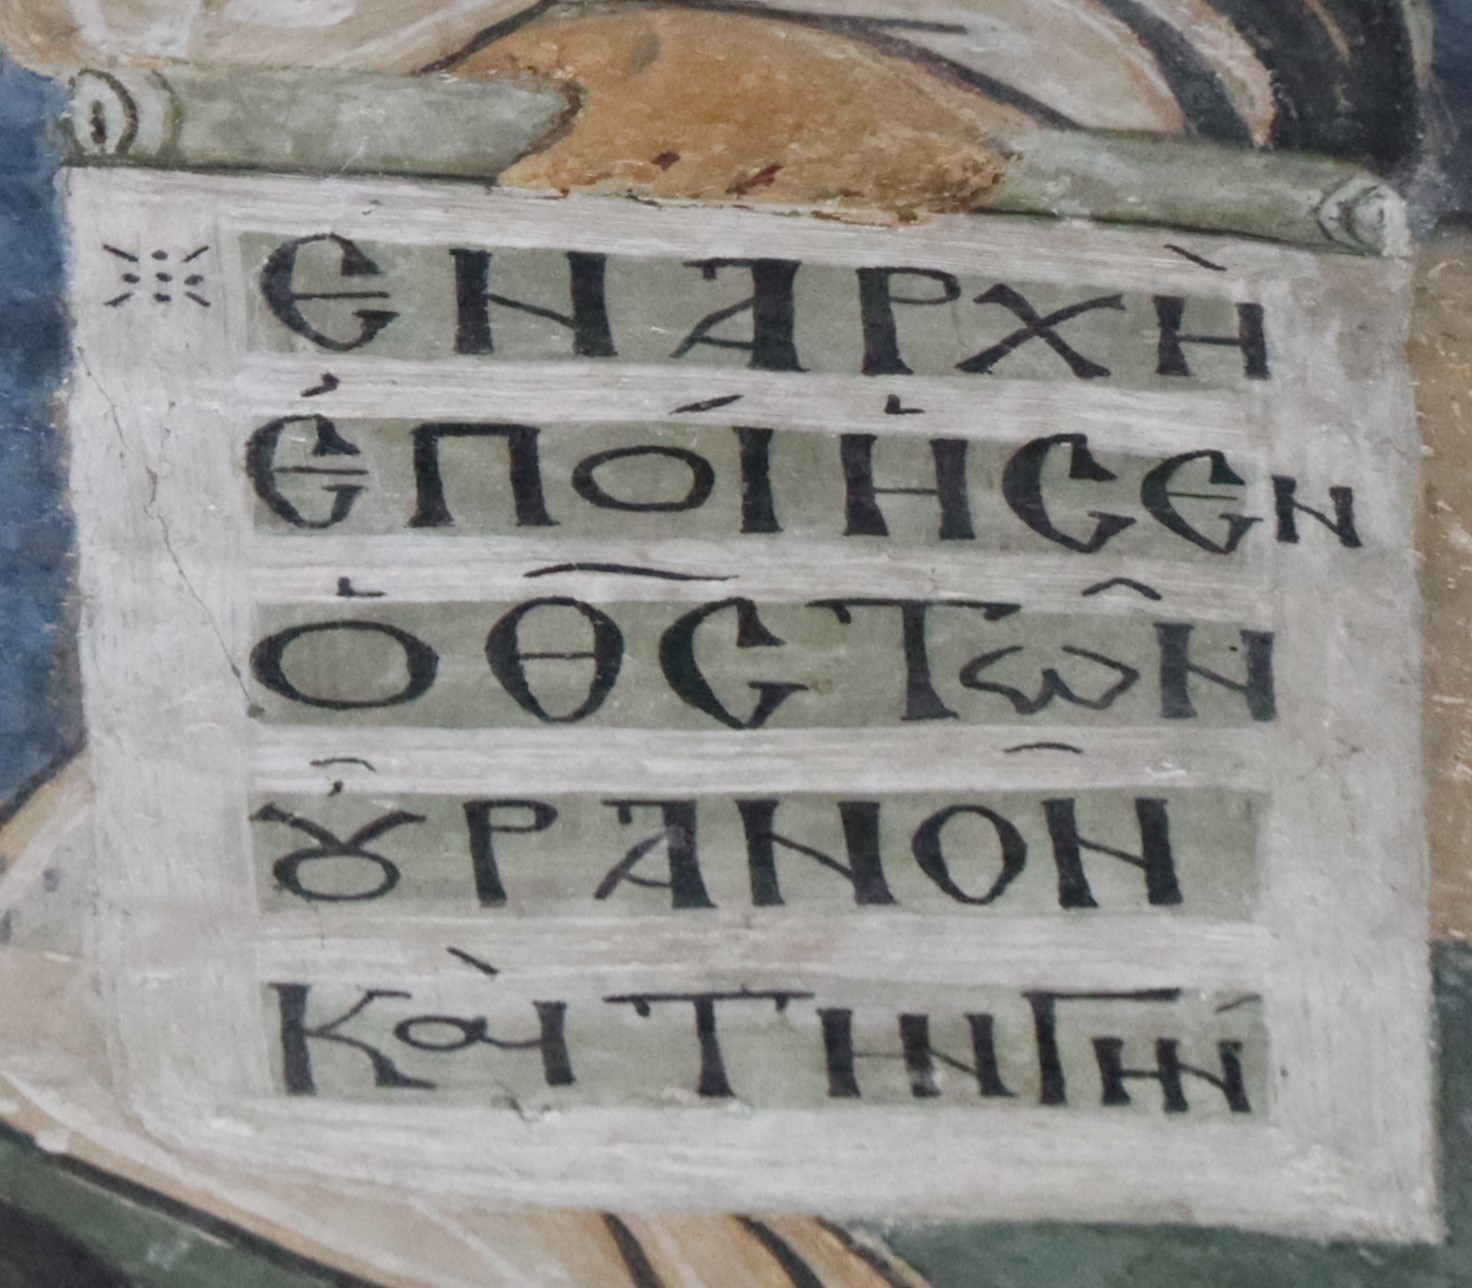 ※ ΕΝ ἈΡΧῊ
ἘΠΟΊἩСΕΝ
Ὁ Θ̅С̅ ΤῶΝ
Ȣ̓͂ΡΑΝΟ̑Ν
ΚαῚ ΤΗΝ ΓΉΝ